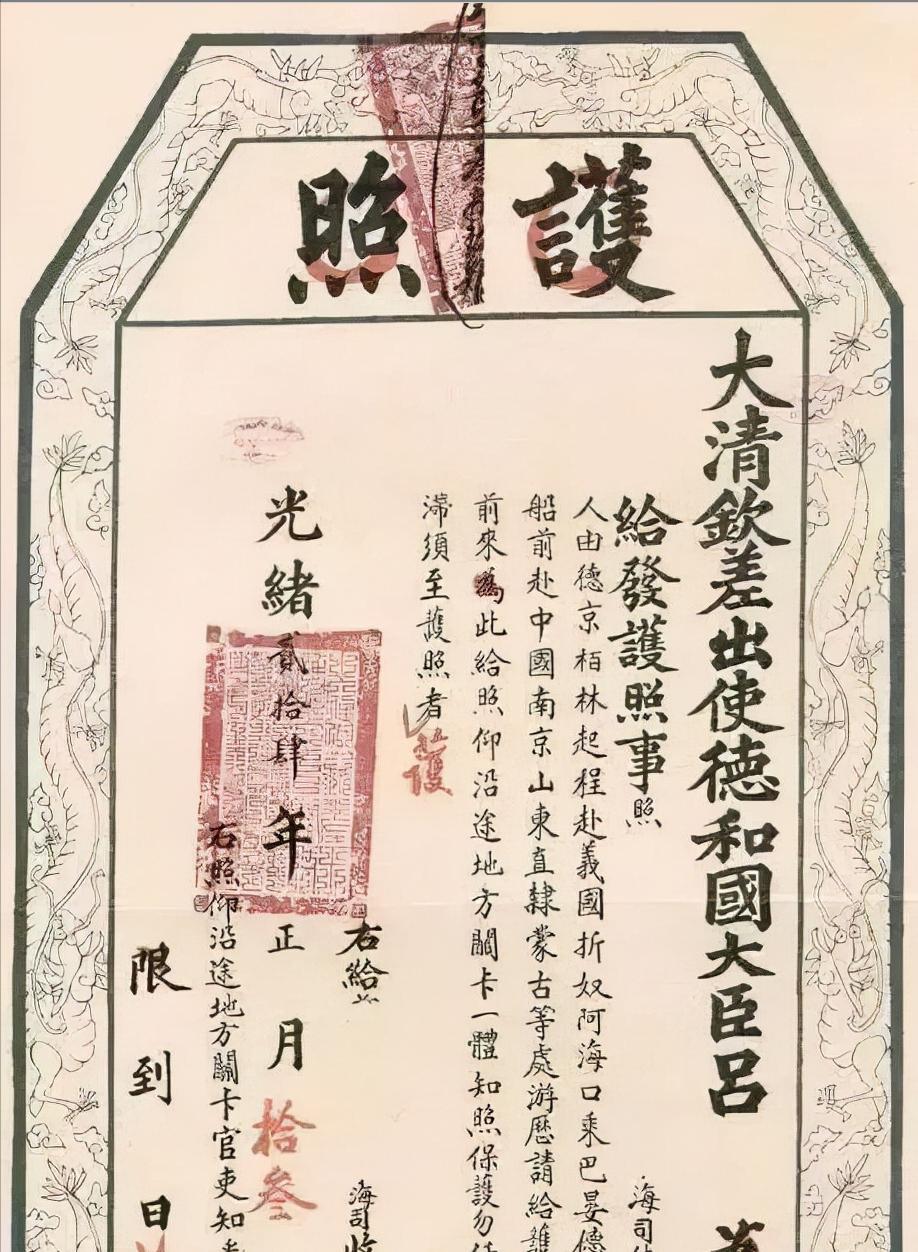 護照
大清欽差出使德和國大臣呂
給發護照事照 海司
人由德京栢林起程赴義國折奴阿海口乘巴晏德
船前赴中國南京山東直隸蒙古等處游歷請給護
前來為此給照仰沿途地方關卡一體知照保護勿
滯須至護照者
右給 海司
光緒貳拾肆年正月拾叁
右照仰沿途地方關卡官吏知
限到日